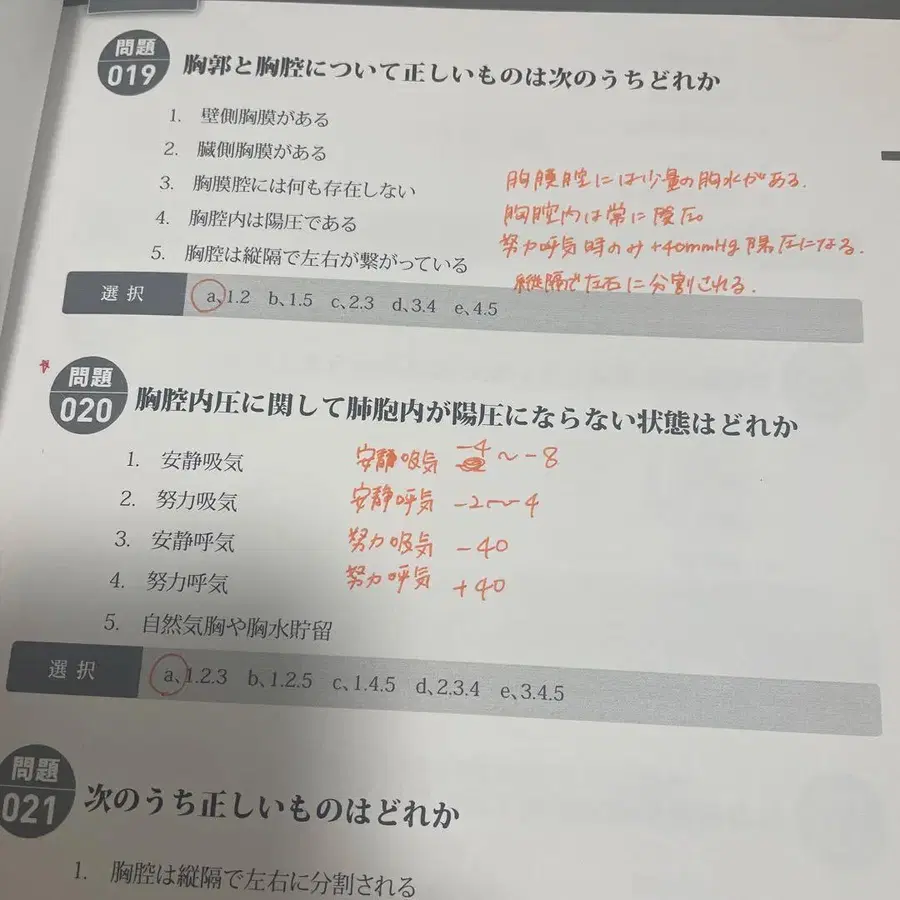 問題
019
胸郭と胸腔について正しいものは次のうちどれか
1. 壁側胸膜がある
2. 臓側胸膜がある
3. 胸膜腔には何も存在しない
胸膜腔には少量の胸水がある.
4. 胸腔内は陽圧である
胸腔内は常に陰圧。
努力呼気時のみ+40mmHg陽圧になる.
5. 胸腔は縦隔で左右が繋がっている
縦隔で左右に分割される.
選択 a、1.2 b、1.5 c、2.3 d、3.4 e、4.5
問題
020
胸腔内圧に関して肺胞内が陽圧にならない状態はどれか
1. 安静吸気
安静吸気 -4 ~ -8
2. 努力吸気
安静呼気 -2~-4
3. 安静呼気
努力吸気 -40
4. 努力呼気
努力呼気 +40
5. 自然気胸や胸水貯留
選択 a、1.2.3 b、1.2.5 c、1.4.5 d、2.3.4 e、3.4.5
問題
021
次のうち正しいものはどれか
1. 胸腔は縦隔で左右に分割される